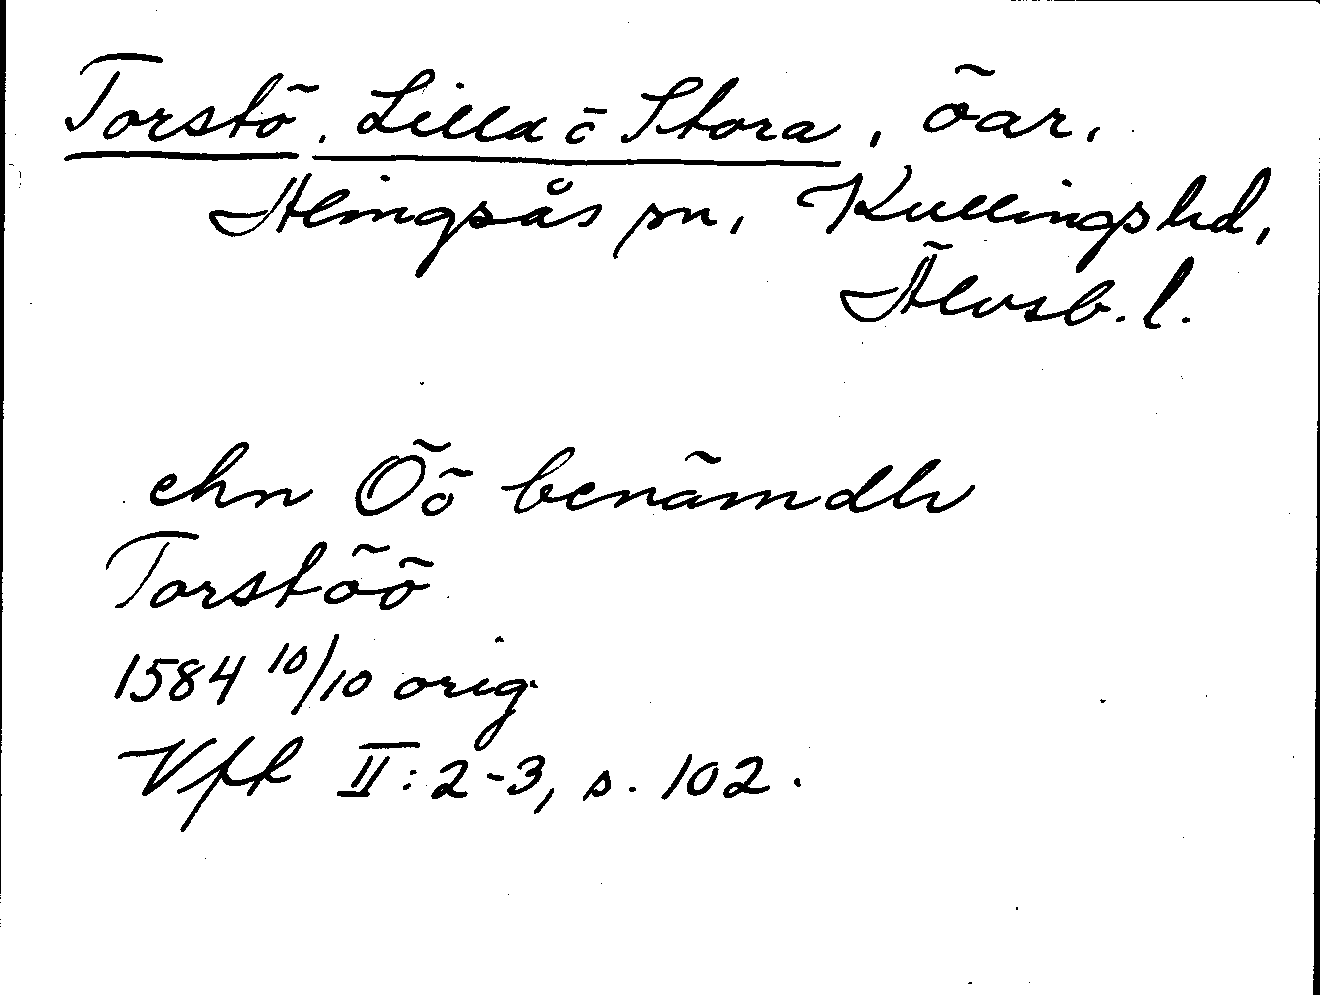 Torstö, Lilla o Stora, öar,
Alingsås sn, Kullings hd,
Älvsb. l.
ehn Öö benämdh
Torstöö
1584 10/10 orig.
Vfft II:2-3, s. 102.